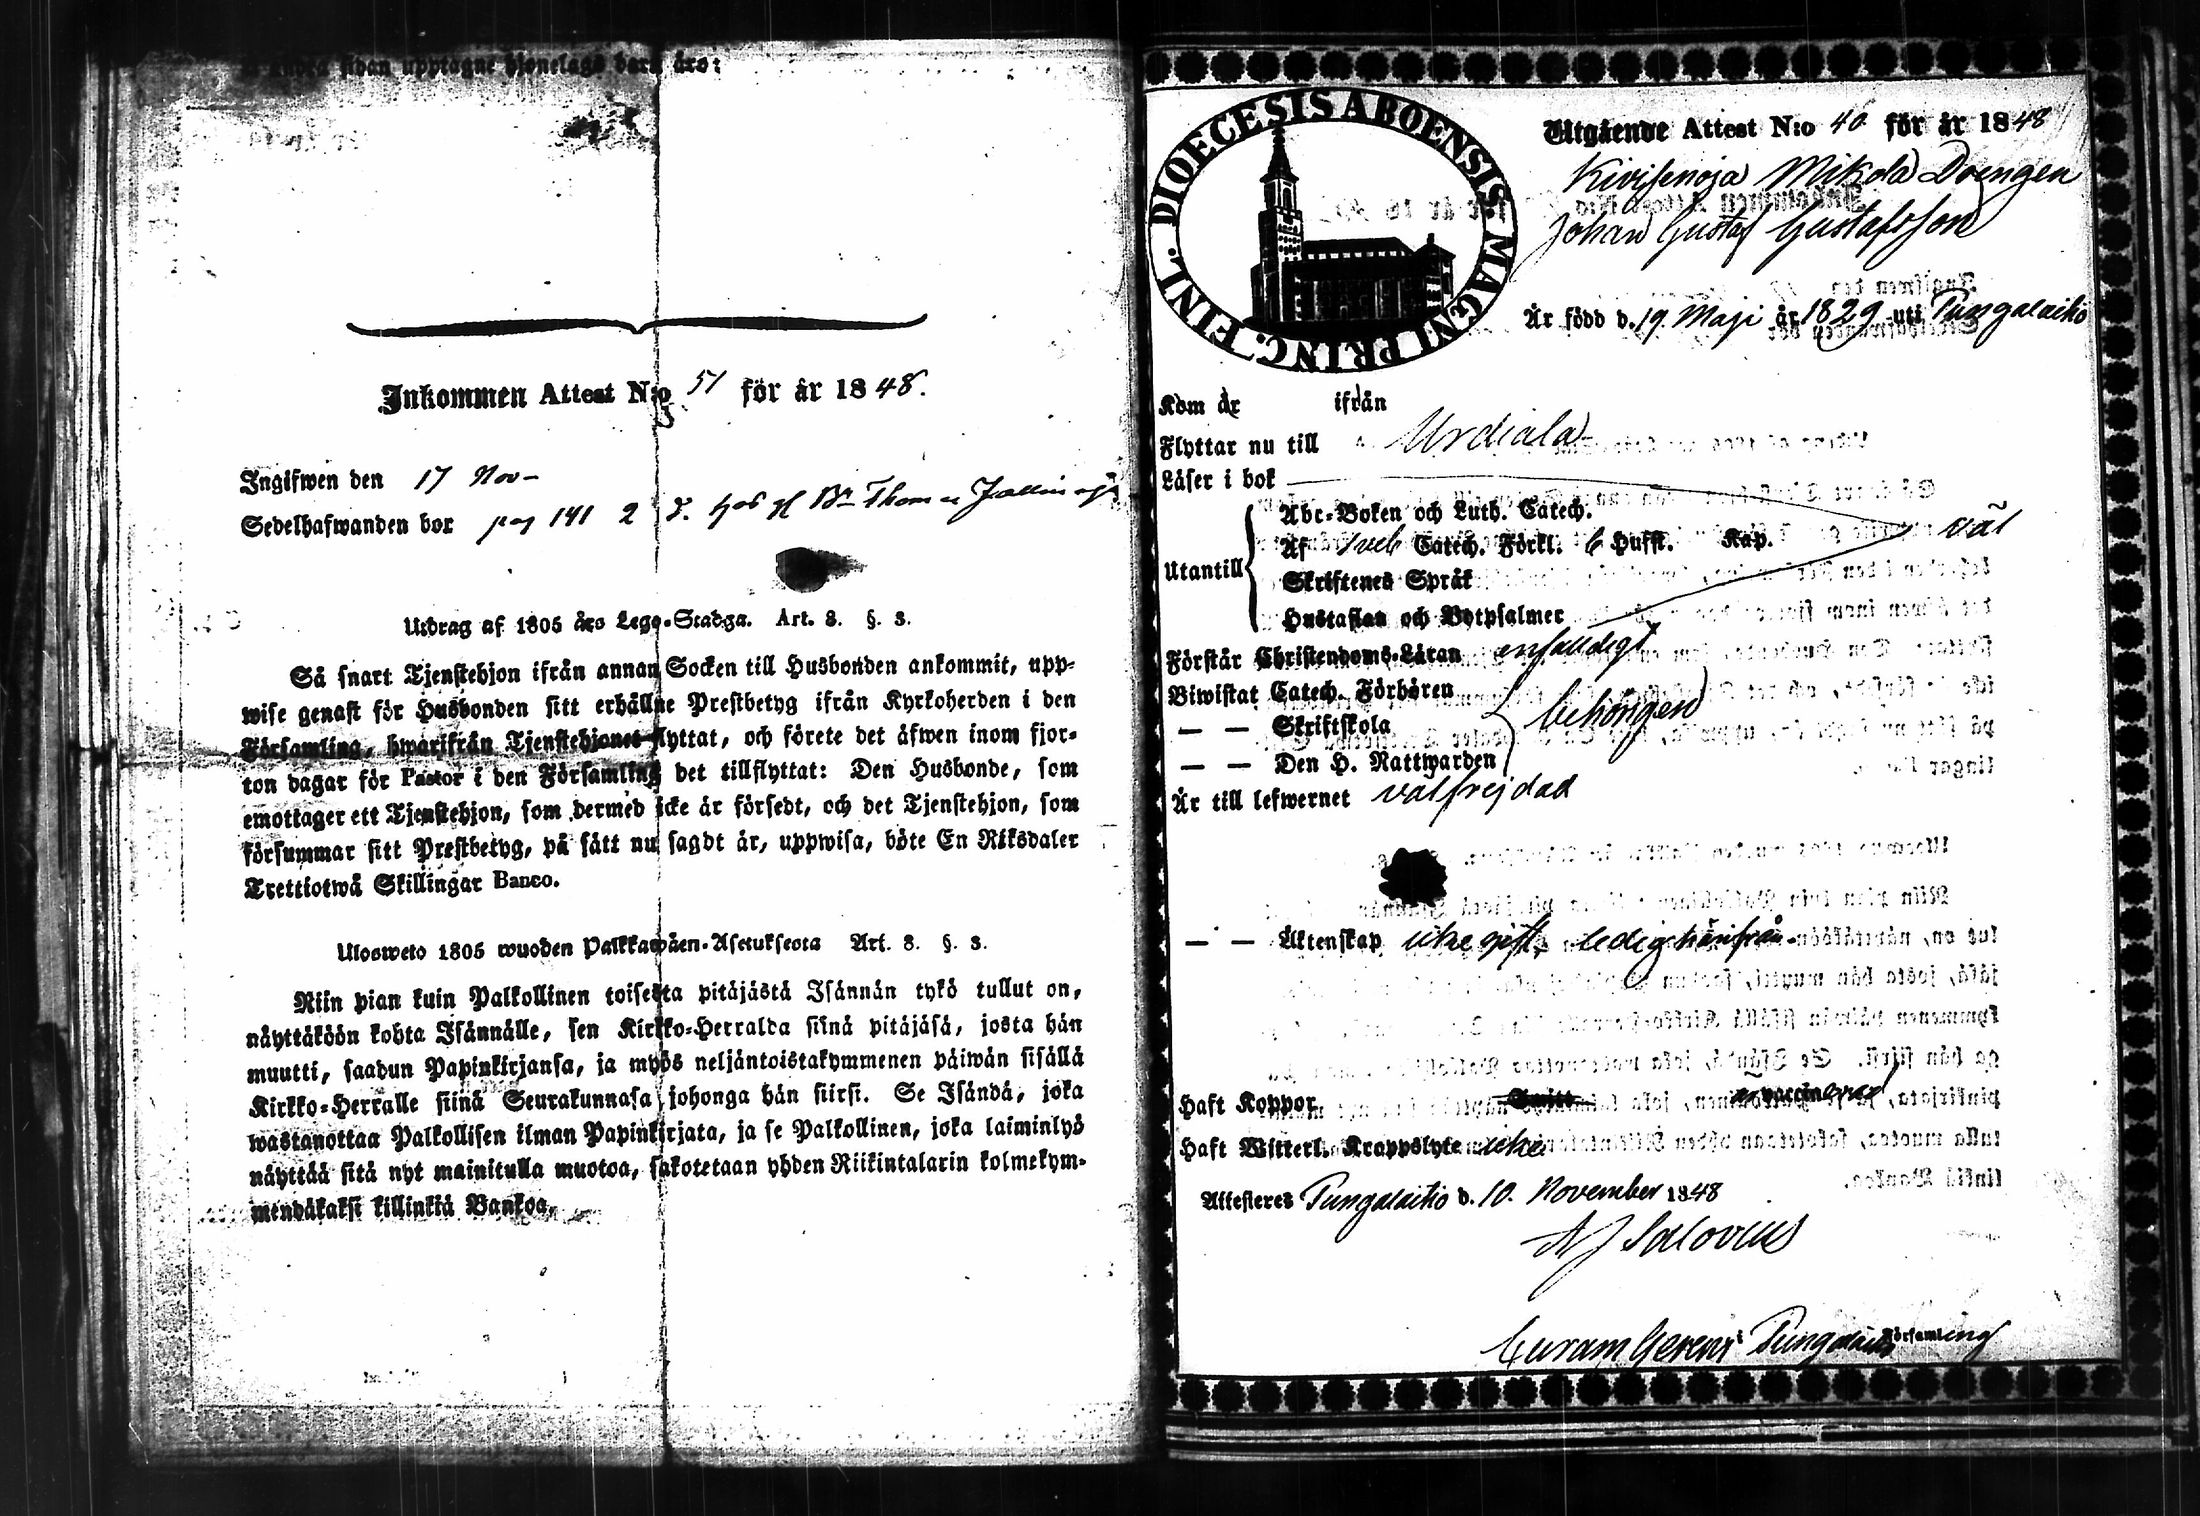 sidan upptagne hjonelags barn äro:
Inkommen Attest N:o 51 för år 1848.
Ingifwen den 17 Nov-
Sedelhafwanden bor pag 141 2
Utdrag af 1805 års Lego-Stadga. Art. 8. §. 3.
Så snart Tjenstehjon ifrån annan Socken till Husbonden ankommit, upp-
wise genast för Husbonden sitt erhållne Prestbetyg ifrån Kyrkoherden i den
Församling, hwarifrån Tjenstehjonet flyttat, och förete det äfwen inom fjor-
ton dagar för Pastor i den Församling det tillflyttat: Den Husbonde, som
emottager ett Tjenstehjon, som dermed icke är försedt, och det Tjenstehjon, som
försummar sitt Prestbetyg, på sätt nu sagdt är, uppwisa, böte En Riksdaler
Trettiotwå Skillingar Banco.
Ulosweto 1805 wuoden Palkkawäen-Asetuksesta Art. 8. §. 3.
Niin pian kuin Palkollinen toisesta pitäjästä Isännän tykö tullut on,
näyttäköön kohta Isännälle, sen Kirkko-Herralda siinä pitäjäsä, josta hän
muutti, saadun Papinkirjansa, ja myös neljäntoistakymmenen päiwän sisällä
Kirkko-Herralle siinä Seurakunnasa johonga hän siirsi. Se Isändä, joka
wastanottaa Palkollisen ilman Papinkirjata, ja se Palkollinen, joka laiminlyö
näyttää sitä nyt mainitulla muotoa, sakotetaan yhden Riikintalarin kolmekym-
mendäkaksi killinkiä Bankoa.
DIOECESIS ABOENSIS MAGNI PRINC. FINL.
Utgående Attest N:o 40 för år 1848
Mikola Drengen
Johan Gustaf Gustafsson
Är född d. 19 Maji år 1829 uti Pungalaitio
Kom år ifrån
Flyttar nu till Urdiala
Läser i bok
Utantill
Abc-Boken och Luth. Catech.
Af Sveb Catech. Förkl. 6 Hufst. Kap. väl
Skriftenes Språk
Hustaflan och Botpsalmer
Förstår Christendoms-Läran enfaldigt
Biwistat Catech. Förhören
— — Skriftskola behörigen
— — Den H. Nattwarden
Är till lefwernet välfrejdad
— — Äktenskap icke gift, ledig härifrån.
Haft Koppor Smitt vaccinerad
Haft Witterl. Kroppslyte icke
Attesteres Pungalaitio d. 10. November 1848
Curam Gerens i Pungalaitio Församling